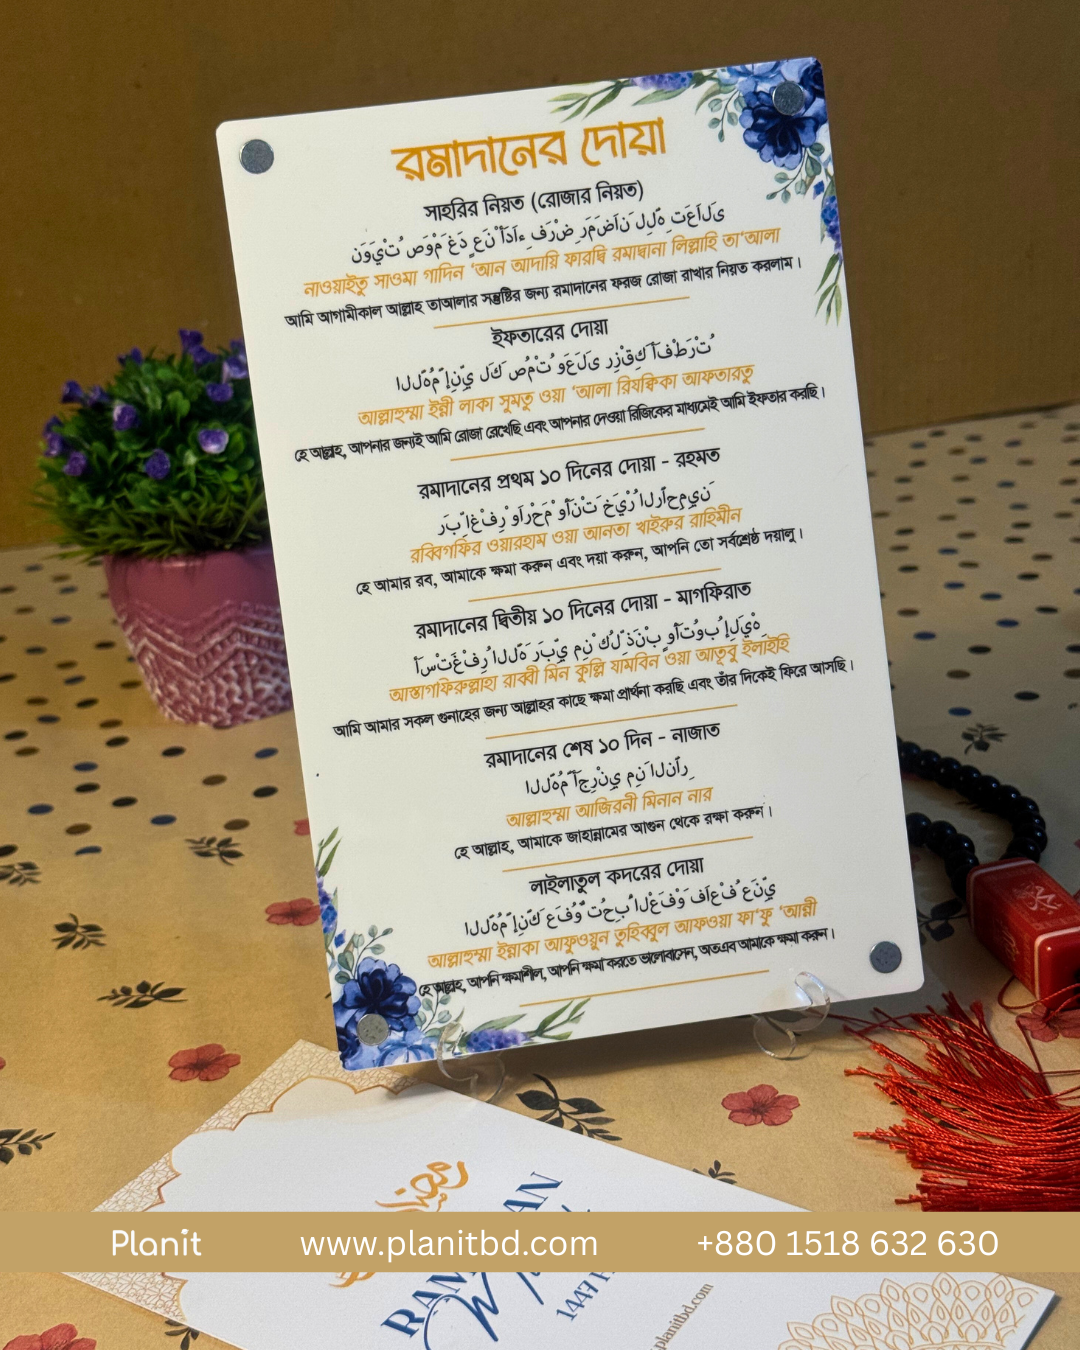 রমাদানের দোয়া
সাহরির নিয়ত (রোজার নিয়ত)
نَوَيْتُ صَوْمَ غَدٍ عَنْ أَدَاءِ فَرْضِ رَمَضَانَ لِلَّهِ تَعَالَى
নাওয়াইতু সাওমা গাদিন ‘আন আদায়ি ফারদ্বি রমাদ্বানা লিল্লাহি তা‘আলা
আমি আগামীকাল আল্লাহ তাআলার সন্তুষ্টির জন্য রমাদানের ফরজ রোজা রাখার নিয়ত করলাম।
ইফতারের দোয়া
اللَّهُمَّ إِنِّي لَكَ صُمْتُ وَعَلَى رِزْقِكَ أَفْطَرْتُ
আল্লাহুম্মা ইন্নী লাকা সুমতু ওয়া ‘আলা রিযক্বিকা আফতারতু
হে আল্লাহ, আপনার জন্যই আমি রোজা রেখেছি এবং আপনার দেওয়া রিজিকের মাধ্যমেই আমি ইফতার করছি।
রমাদানের প্রথম ১০ দিনের দোয়া - রহমত
رَبِّ اغْفِرْ وَارْحَمْ وَأَنْتَ خَيْرُ الرَّاحِمِينَ
রব্বিগফির ওয়ারহাম ওয়া আনতা খাইরুর রাহিমীন
হে আমার রব, আমাকে ক্ষমা করুন এবং দয়া করুন, আপনি তো সর্বশ্রেষ্ঠ দয়ালু।
রমাদানের দ্বিতীয় ১০ দিনের দোয়া - মাগফিরাত
أَسْتَغْفِرُ اللَّهَ رَبِّي مِنْ كُلِّ ذَنْبٍ وَأَتُوبُ إِلَيْهِ
আস্তাগফিরুল্লাহা রাব্বী মিন কুল্লি যামবিন ওয়া আতুবু ইলাইহি
আমি আমার সকল গুনাহের জন্য আল্লাহর কাছে ক্ষমা প্রার্থনা করছি এবং তাঁর দিকেই ফিরে আসছি।
রমাদানের শেষ ১০ দিন - নাজাত
اللَّهُمَّ أَجِرْنِي مِنَ النَّارِ
আল্লাহুম্মা আজিরনী মিনান নার
হে আল্লাহ, আমাকে জাহান্নামের আগুন থেকে রক্ষা করুন।
লাইলাতুল কদরের দোয়া
اللَّهُمَّ إِنَّكَ عَفُوٌّ تُحِبُّ الْعَفْوَ فَاعْفُ عَنِّي
আল্লাহুম্মা ইন্নাকা আফুওয়ুন তুহিব্বুল আফওয়া ফা‘ফু ‘আন্নী
হে আল্লাহ, আপনি ক্ষমাশীল, আপনি ক্ষমা করতে ভালোবাসেন, অতএব আমাকে ক্ষমা করুন।
Planit
www.planitbd.com
+880 1518 632 630
1447
planitbd.com